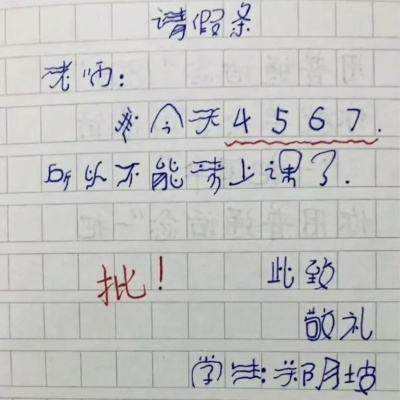 请假条
老师:
今天4567.
所以不能来上课了.
批!
此致
敬礼
学生:郑阴坡